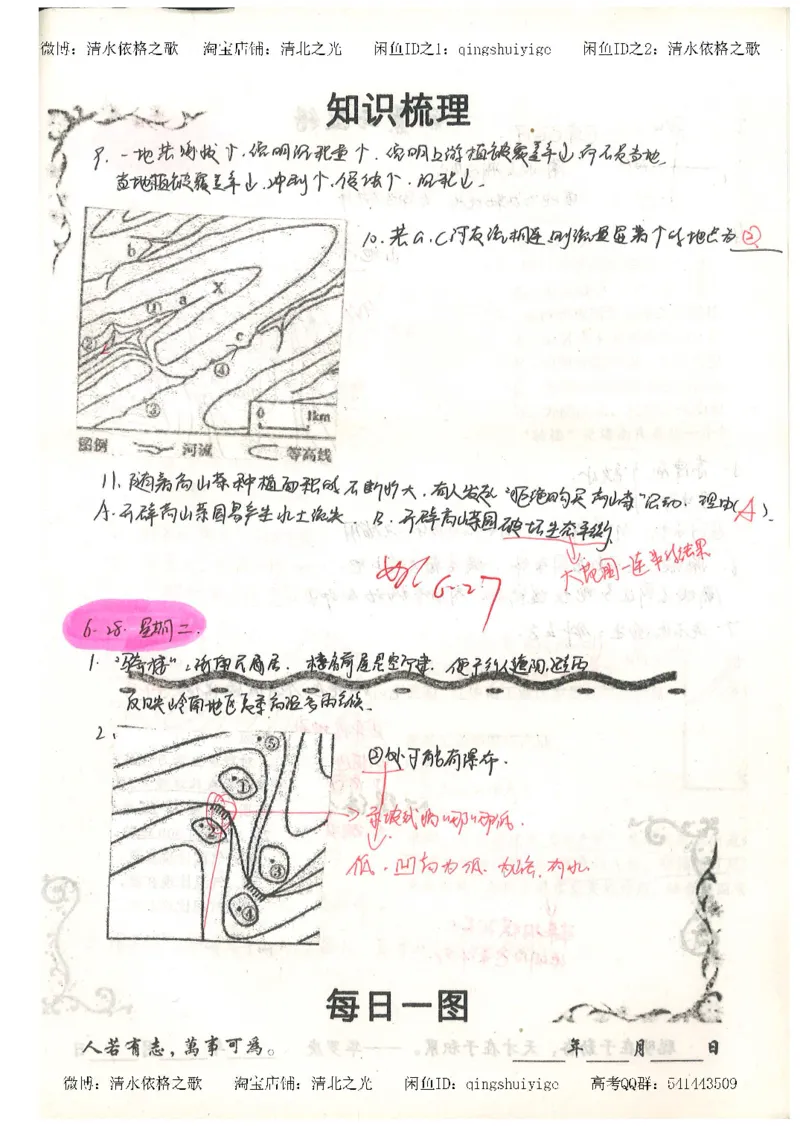 微博：清水依格之歌 淘宝店铺：清北之光 闲鱼ID之1：qingshuiyige 闲鱼ID之2：清水依格之歌
知识梳理
9. 一地共海拔个，说明沉积量个，说明上游植被覆盖率⼭而不是当地
当地植被覆盖率⼭，冲刷个，侵蚀个，沉积⼭。
b
X
① a
② c
④
③
0 1km
图例 河流 等高线
10. 若a、C河反流相连则流量显著个的地点为②
11. 随着高山菜种植面积的不断扩大，有人发起“拒绝购买高山菜”活动，理由（A）。
A. 开辟高山菜园易产生水土流失 B. 开辟高山菜园破坏生态平衡
大范围一连串的结果
6-27
6-28. 星期二.
1. “骑楼”：
反映岭南地区
2.
⑤
①
②
③
④
②处可能有瀑布.
低，凹向为低，为谷，有水.
每日一图
人若有志，萬事可為。
年 月 日
微博：清水依格之歌 淘宝店铺：清北之光 闲鱼ID：qingshuiyige 高考QQ群：541443509